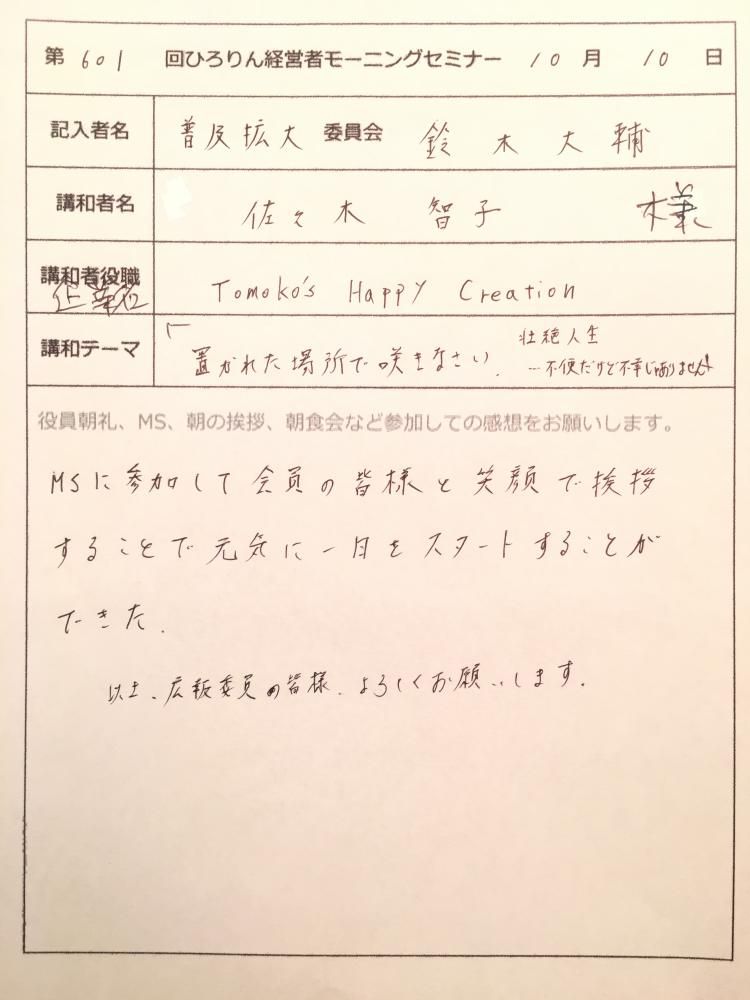 第 601 回ひろりん経営者モーニングセミナー 10 月 10 日
記入者名 普及拡大 委員会 鈴木大輔
講和者名 佐々木 智子 様
講和者役職 Tomoko's Happy Creation
企業名
講和テーマ 「置かれた場所で咲きなさい. 壮絶人生
…不便だけど不幸じゃありません!
役員朝礼、MS、朝の挨拶、朝食会など参加しての感想をお願いします。
MSに参加して会員の皆様と笑顔で挨拶
することで元気に一日をスタートすることが
できた.
以上、広報委員の皆様、よろしくお願いします.